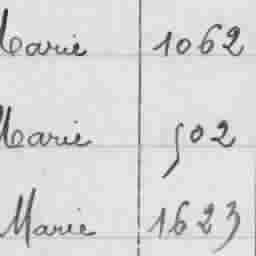 Marie 1062
Marie 502
Marie 1623